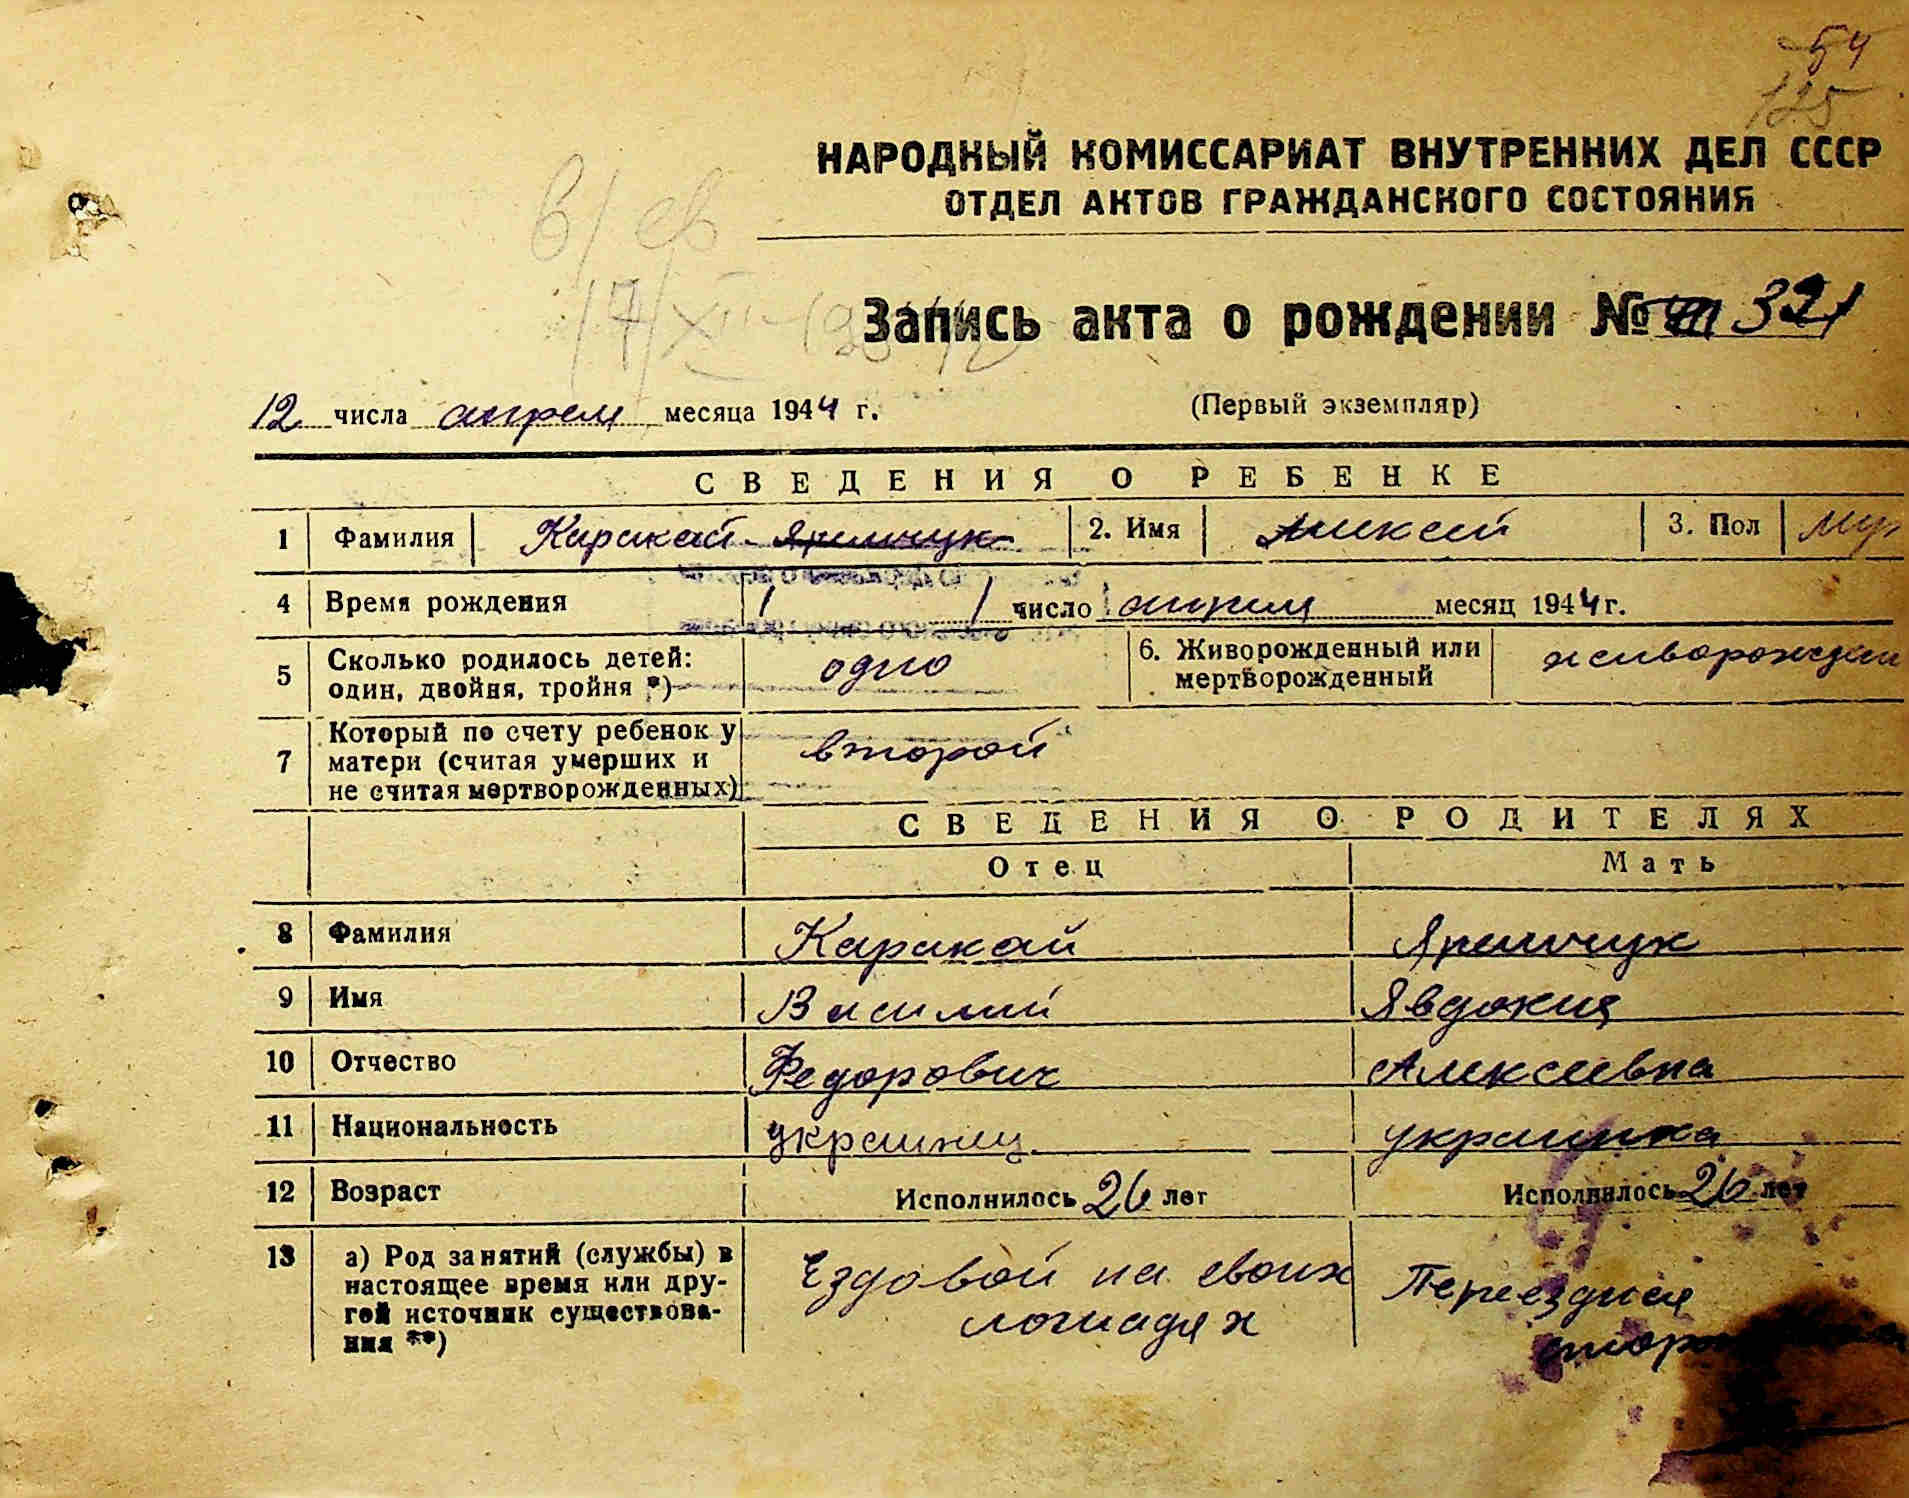 54
125
НАРОДНЫЙ КОМИССАРИАТ ВНУТРЕННИХ ДЕЛ СССР
ОТДЕЛ АКТОВ ГРАЖДАНСКОГО СОСТОЯНИЯ
Запись акта о рождении № 321
12 числа апреля месяца 1944 г.
(Первый экземпляр)
СВЕДЕНИЯ О РЕБЕНКЕ
1 Фамилия Каракай - Яремчук 2. Имя Алексей 3. Пол муж
4 Время рождения 1 число апреля месяц 1944 г.
5 Сколько родилось детей: один, двойня, тройня *) одно 6. Живорожденный или мертворожденный живорожден
7 Который по счету ребенок у матери (считая умерших и не считая мертворожденных) второй
СВЕДЕНИЯ О РОДИТЕЛЯХ
Отец Мать
8 Фамилия Каракай Яремчук
9 Имя Василий Явдокия
10 Отчество Федорович Алексеевна
11 Национальность украинец украинка
12 Возраст Исполнилось 26 лет Исполнилось 26 лет
13 а) Род занятий (службы) в настоящее время или другой источник существования **) Ездовой на своих лошадях Переездная